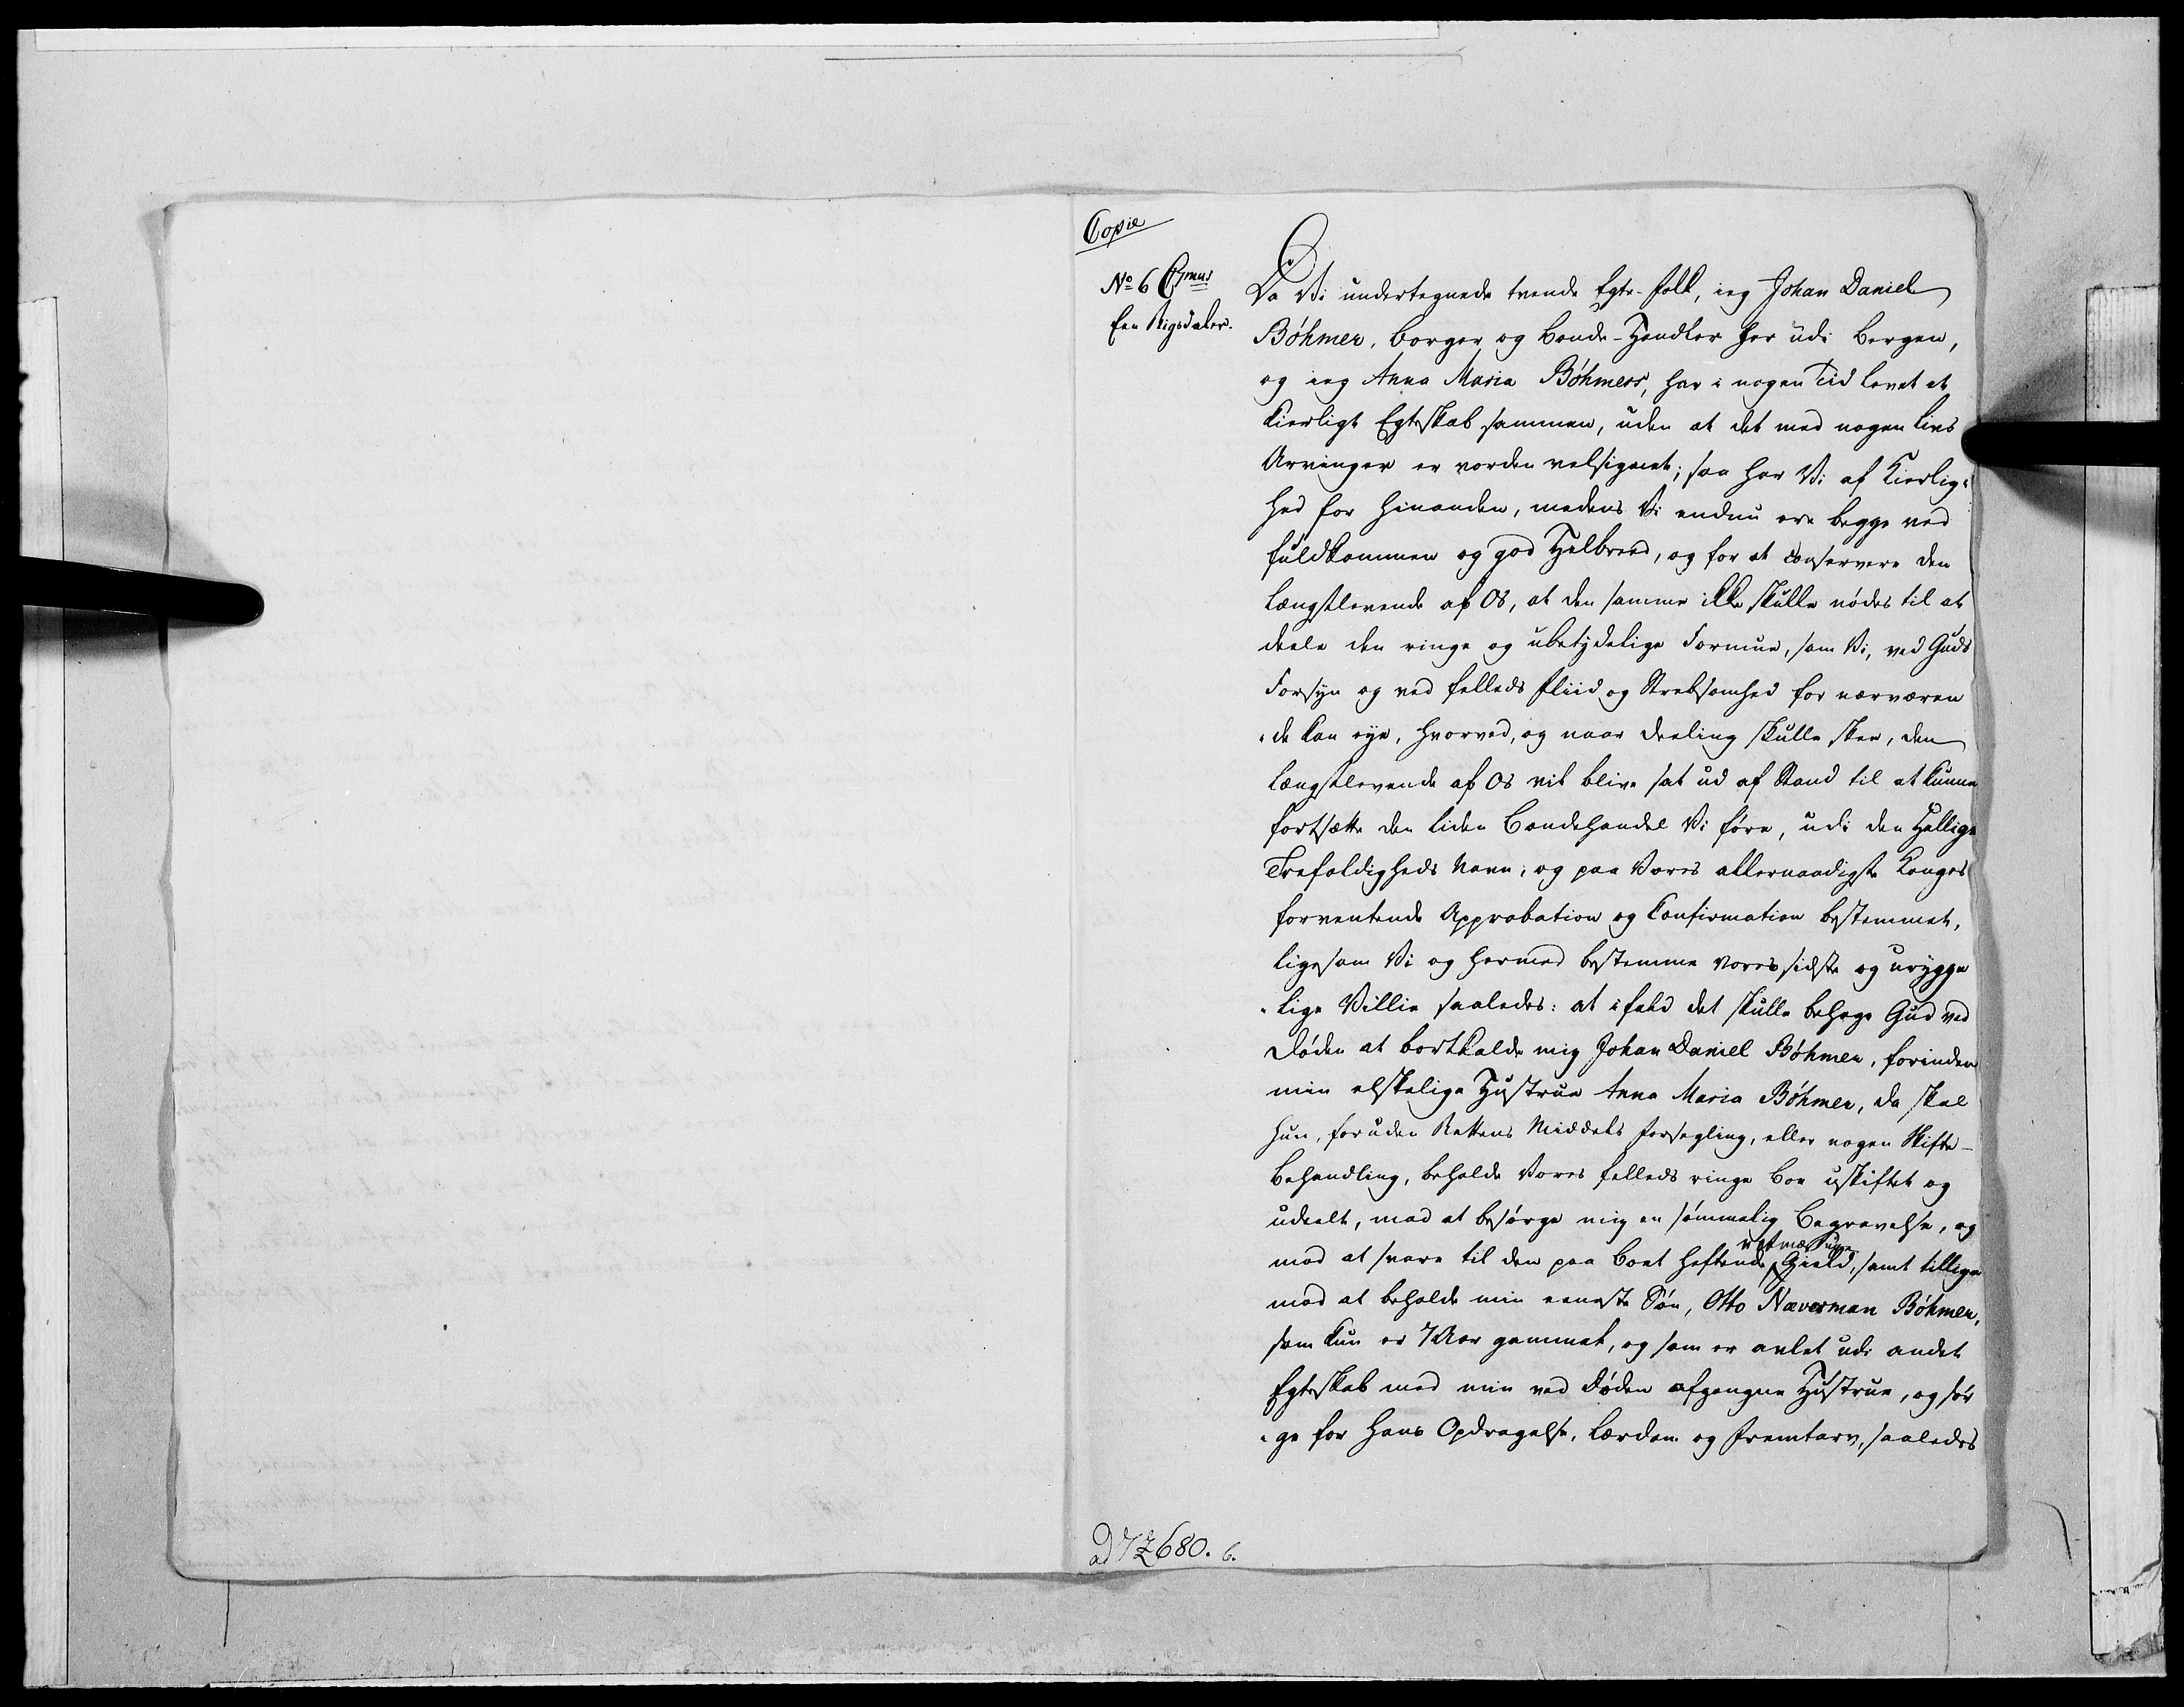 Copie
No 6 Cßmus
Een Rigsdaler.
Da Vi undertegnede tvende Egte-Folk, ieg Johan Daniel
Bøhmer, borger og bonde-Handler her udi Bergen,
og ieg Anna Maria Bøhmers, har i nogen Tiid levet et
kierligt Egteskab sammen, uden at det med nogen Livs
Arvinger er vorden velsignet; saa har Vi af Kierlig-
hed for hinanden, medens Vi endnu ere begge ved
fuldkommen og god Helbreed, og for at conservere den
længstlevende af Os, at den samme ikke skulle nødes til at
deele den ringe og ubetydelige Formue, som Vi, ved Guds
Forsyn og ved felleds Fliid og Strebsomhed for nærværen
-de kan eye, hvorved, og naar deeling skulle skee, den
længstlevende af Os vil blive sat ud af Stand til at kunne
fortsætte den liden Bondehandel Vi føre, udi den Hellige
Trefoldigheds Navn, og paa Vores allernaadigste Konges
forventende Approbation og Confirmation bestemmet,
ligesom Vi og hermed bestemme vores sidste og urygge
-lige Villie saaledes: at ifald det skulle behage Gud ved
Døden at bortkalde mig Johan Daniel Bøhmer, forinden
min elskelige Hustrue Anna Maria Bøhmer, da skal
hun, foruden Rettens Middels forsegling, eller nogen Skifte-
behandling, beholde Vores felleds ringe Boe uskiftet og
udeelt, mod at besørge mig en sømmelig Begravelse, og
mod at svare til den paa Boet heftende retmæssige Gield, samt tillige
mod at beholde min eeneste Søn, Otto Næverman Bøhmer,
som kun er 7 Aar gammel, og som er avlet udi andet
Egteskab med min ved Døden afgangne Hustrue, og sør
-ge for hans Opdragelse, Lærdom og Fremtarv, saaledes
ad 680. 6.